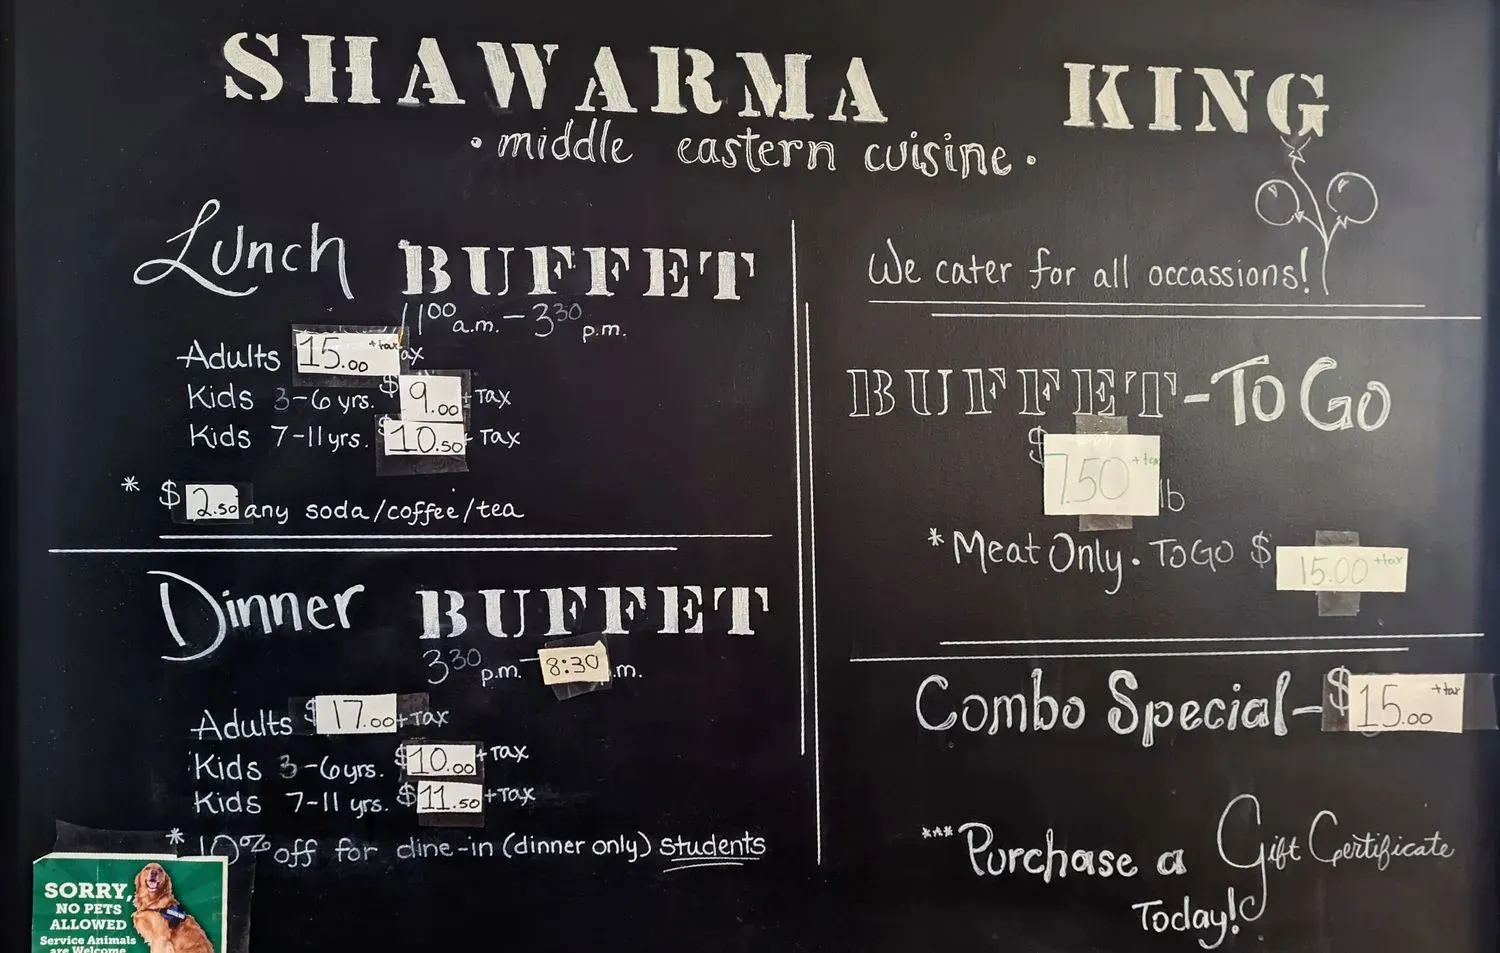 SHAWARMA KING
• middle eastern cuisine •
Lunch BUFFET
11:00 a.m. – 3:30 p.m.
Adults 15.00 +tax
Kids 3-6 yrs. $ 9.00 + Tax
Kids 7-11 yrs. $ 10.50 + Tax
* $ 2.50 any soda/coffee/tea
Dinner BUFFET
3:30 p.m. – 8:30 .m.
Adults $ 17.00 + Tax
Kids 3-6 yrs. $ 10.00 + Tax
Kids 7-11 yrs. $ 11.50 + Tax
* 10% off for dine-in (dinner only) students
SORRY,
NO PETS
ALLOWED
Service Animals
are Welcome
We cater for all occassions!
BUFFET-To Go
$ 7.50 +tax lb
*Meat Only • To GO $ 15.00 +tax
Combo Special – $ 15.00 +tax
*** Purchase a Gift Certificate
Today!